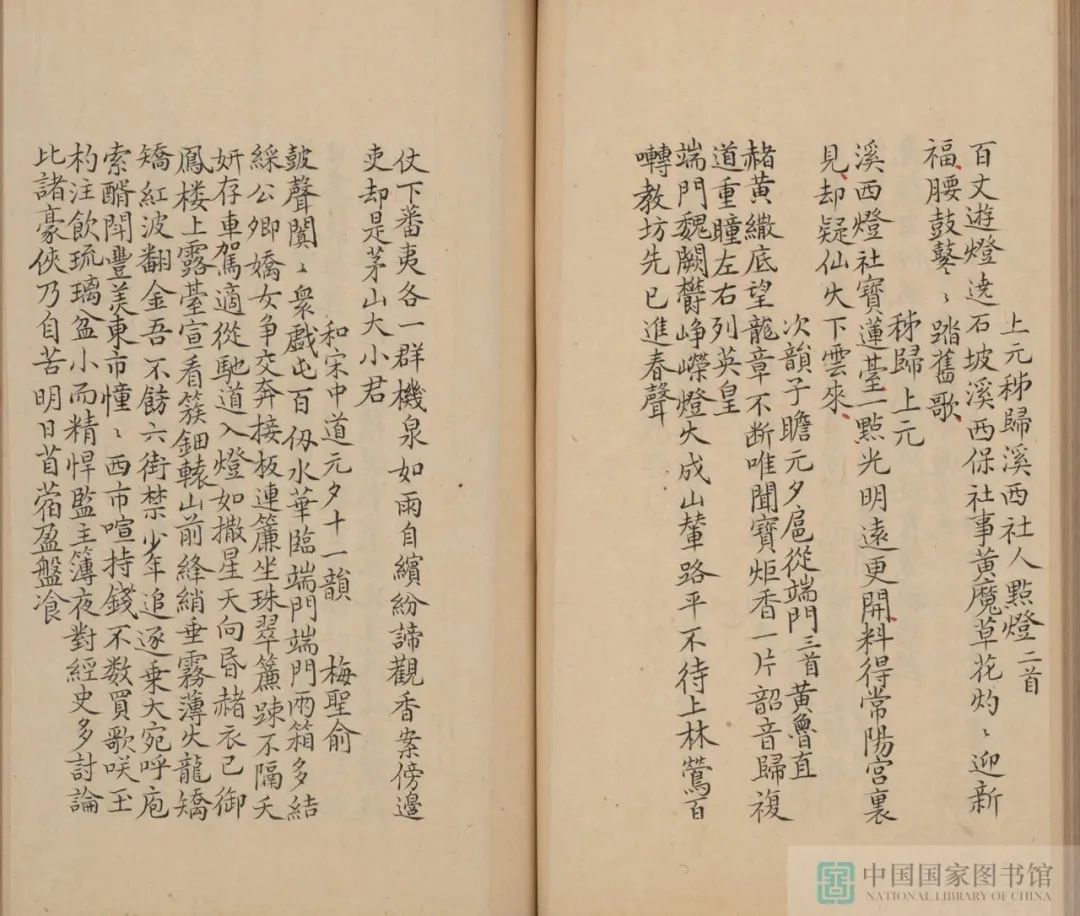 上元秭歸溪西社人點燈二首
百丈遊燈遶石坡溪西保社事黄魔草花灼〻迎新
福腰鼓鼕〻踏舊歌
秭歸上元
溪西燈社寶蓮臺一點光明遠更開料得常陽宫裏
見却疑仙火下雲來
次韻子瞻元夕扈從端門三首黄魯直
赭黄繖底望龍章不断唯聞寶炬香一片韶音歸複
道重瞳左右列英皇
端門魏闕欝峥嶸燈火成山輦路平不待上林鶯百
囀教坊先已進春聲
仗下番夷各一群機泉如雨自繽紛諦觀香案傍邊
吏却是茅山大小君
和宋中道元夕十一韻 梅聖俞
鼓聲闐〻衆戲屯百仭水華臨端門端門兩箱多結
綵公卿嬌女争交奔接板連簾坐珠翠簾踈不隔夭
妍存車駕適從馳道入燈如撒星天向昏赭衣已御
鳳楼上露臺宣看簇鈿轅山前絳綃垂霧薄火龍矯
矯紅波翻金吾不飭六街禁少年追逐乗大宛呼庖
索醑鬥豐美東市憧〻西市喧持錢不数買歌咲玉
杓注飲琉璃盆小而精悍監主簿夜對經史多討論
比諸豪俠乃自苦明日苜蓿盈盤飡
中国国家图书馆
NATIONAL LIBRARY OF CHINA